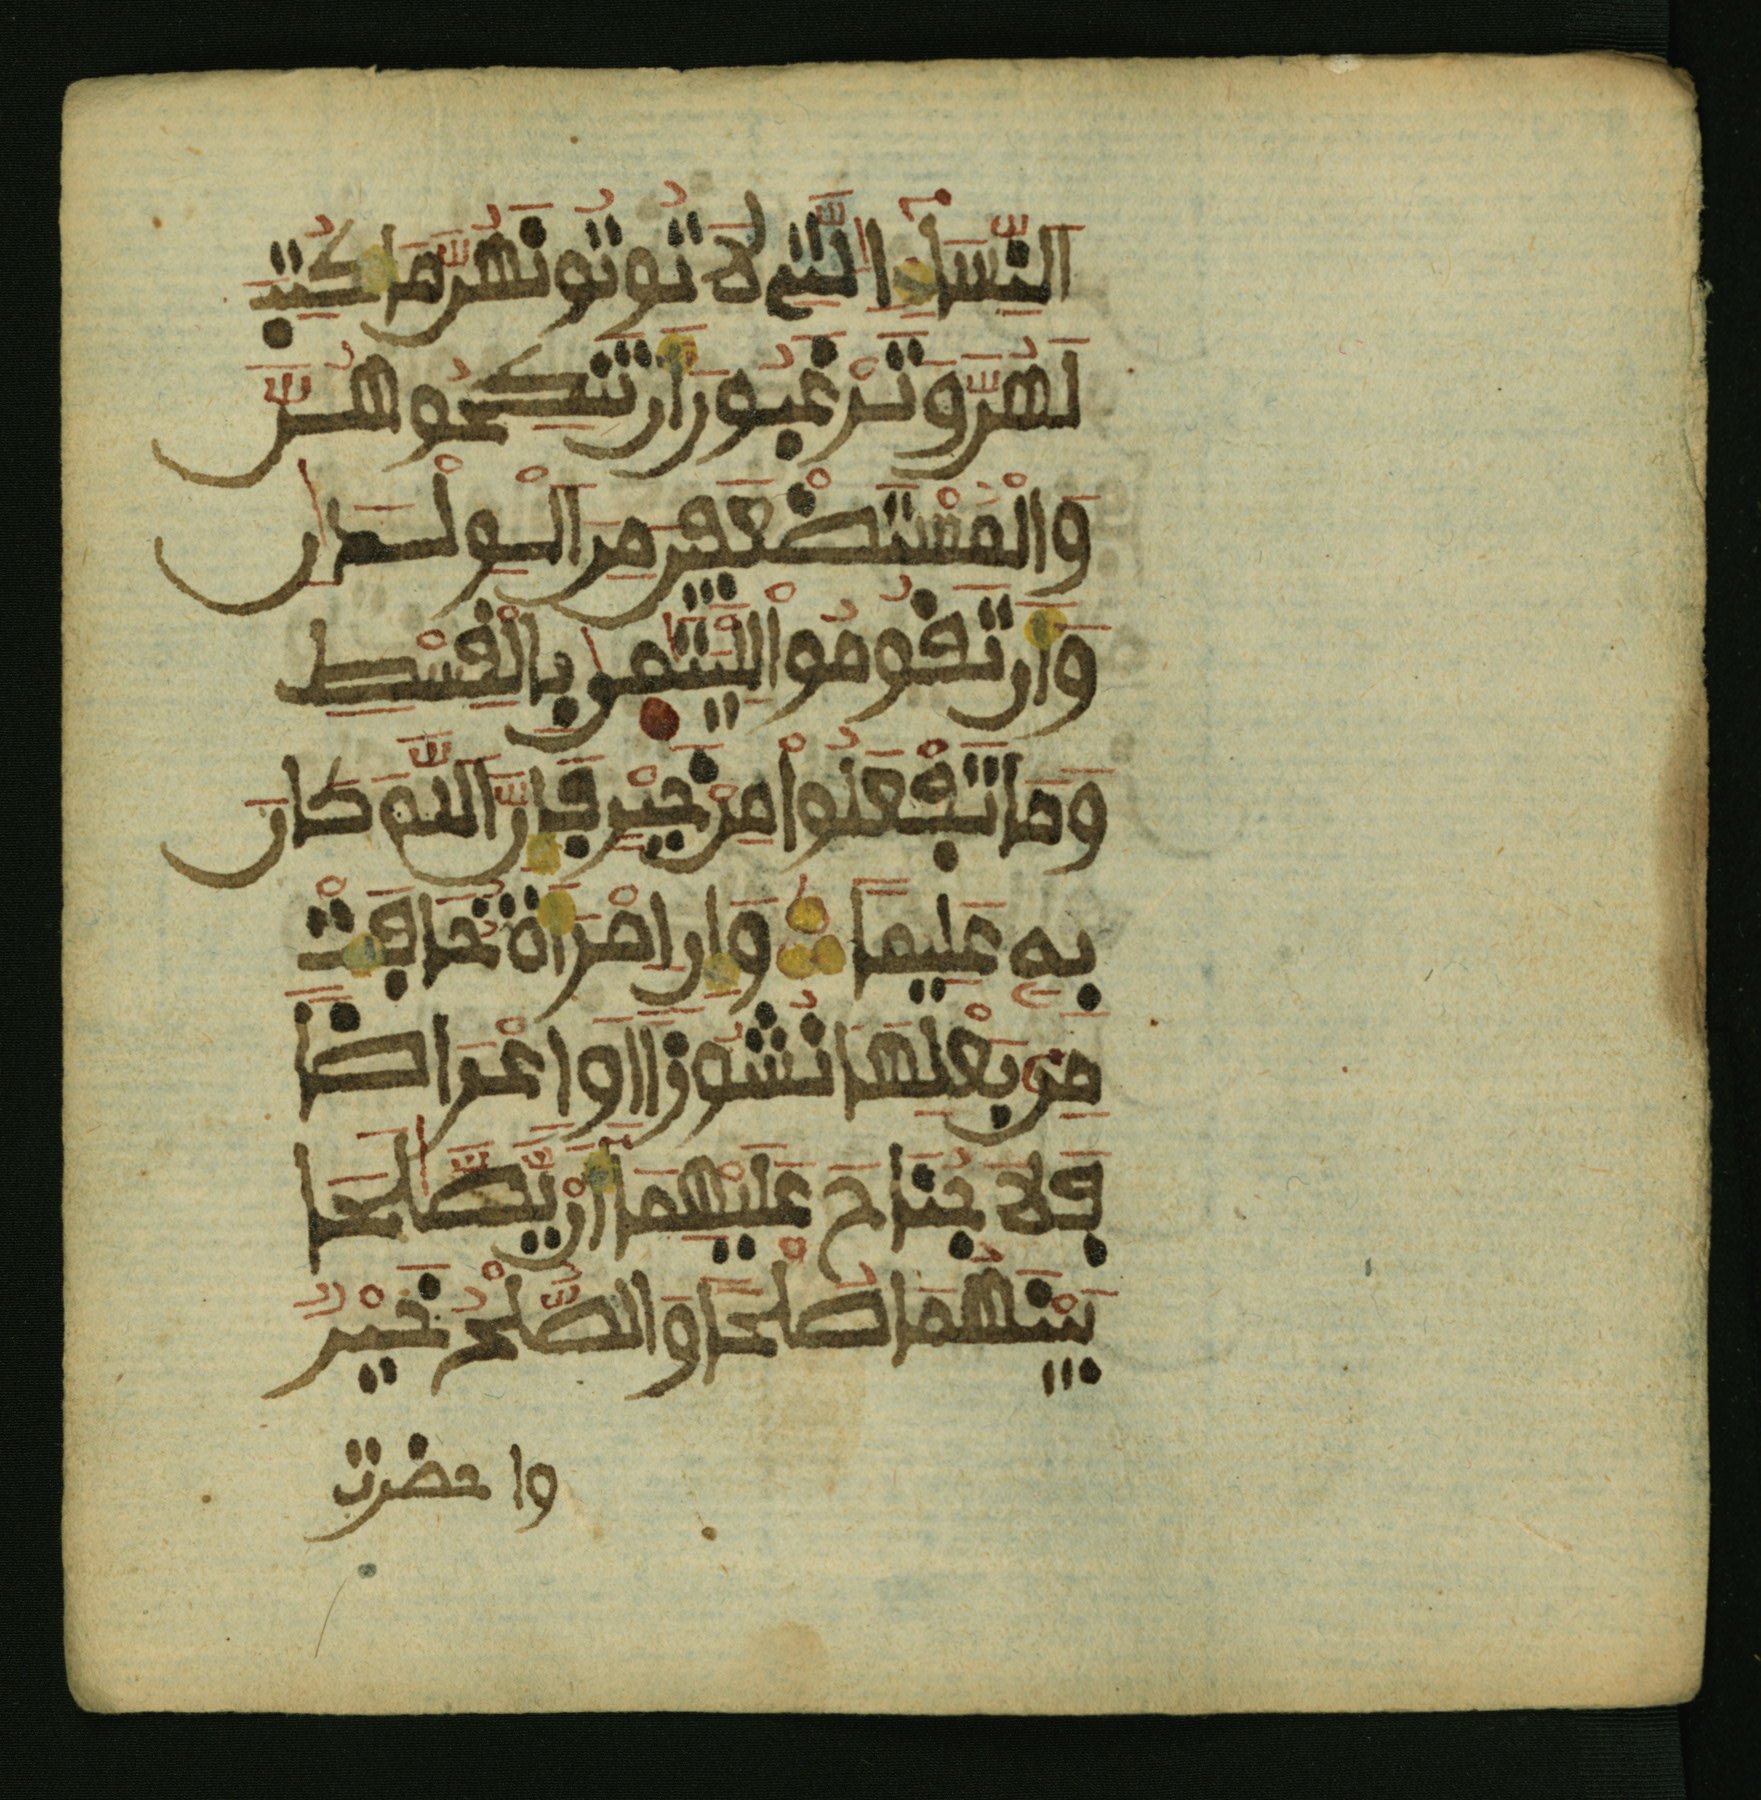 النِّسَآءِ الّٰتِے لَا تُوتُونَهُنَّ مَا كُتِبَ
لَهُنَّ وَتَرْغَبُونَ أَن تَنكِحُوهُنَّ
وَالْمُسْتَضْعَفِينَ مِنَ الْوِلْدَٰنِ
وَأَن تَقُومُواْ لِلْيَتَٰمَىٰ بِالْقِسْطِ
وَمَا تَفْعَلُواْ مِنْ خَيْرٍ فَإِنَّ اَللَّهَ كَانَ
بِهِۦ عَلِيمًا وَإِنِ اِمْرَأَةٌ خَافَتْ
مِنۢ بَعْلِهَا نُشُوزًا اَوِ اِعْرَاضًا
فَلَا جُنَاحَ عَلَيْهِمَآ أَنْ يَّصَّٰلَحَا
بَيْنَهُمَا صُلْحًا وَالصُّلْحُ خَيْرٌ
واحضرت